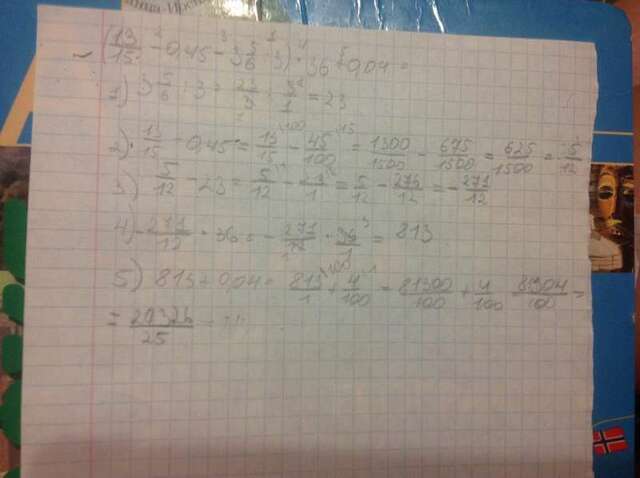 (13/15 - 0,45 - 3 5/6 : 3) · 36 + 0,04 =
1) 3 5/6 : 3 = 23/3 · 3/1 = 23
2) 13/15 - 0,45 = 13/15 - 45/100 = 1300/1500 - 675/1500 = 625/1500 = 5/12
3) 5/12 - 23 = 5/12 - 23/1 = 5/12 - 276/12 = - 271/12
4) - 271/12 · 36 = - 271/12 · 36/1 = 813
5) 813 + 0,04 = 813/1 + 4/100 = 81300/100 + 4/100 81304/100 =
= 20326/25